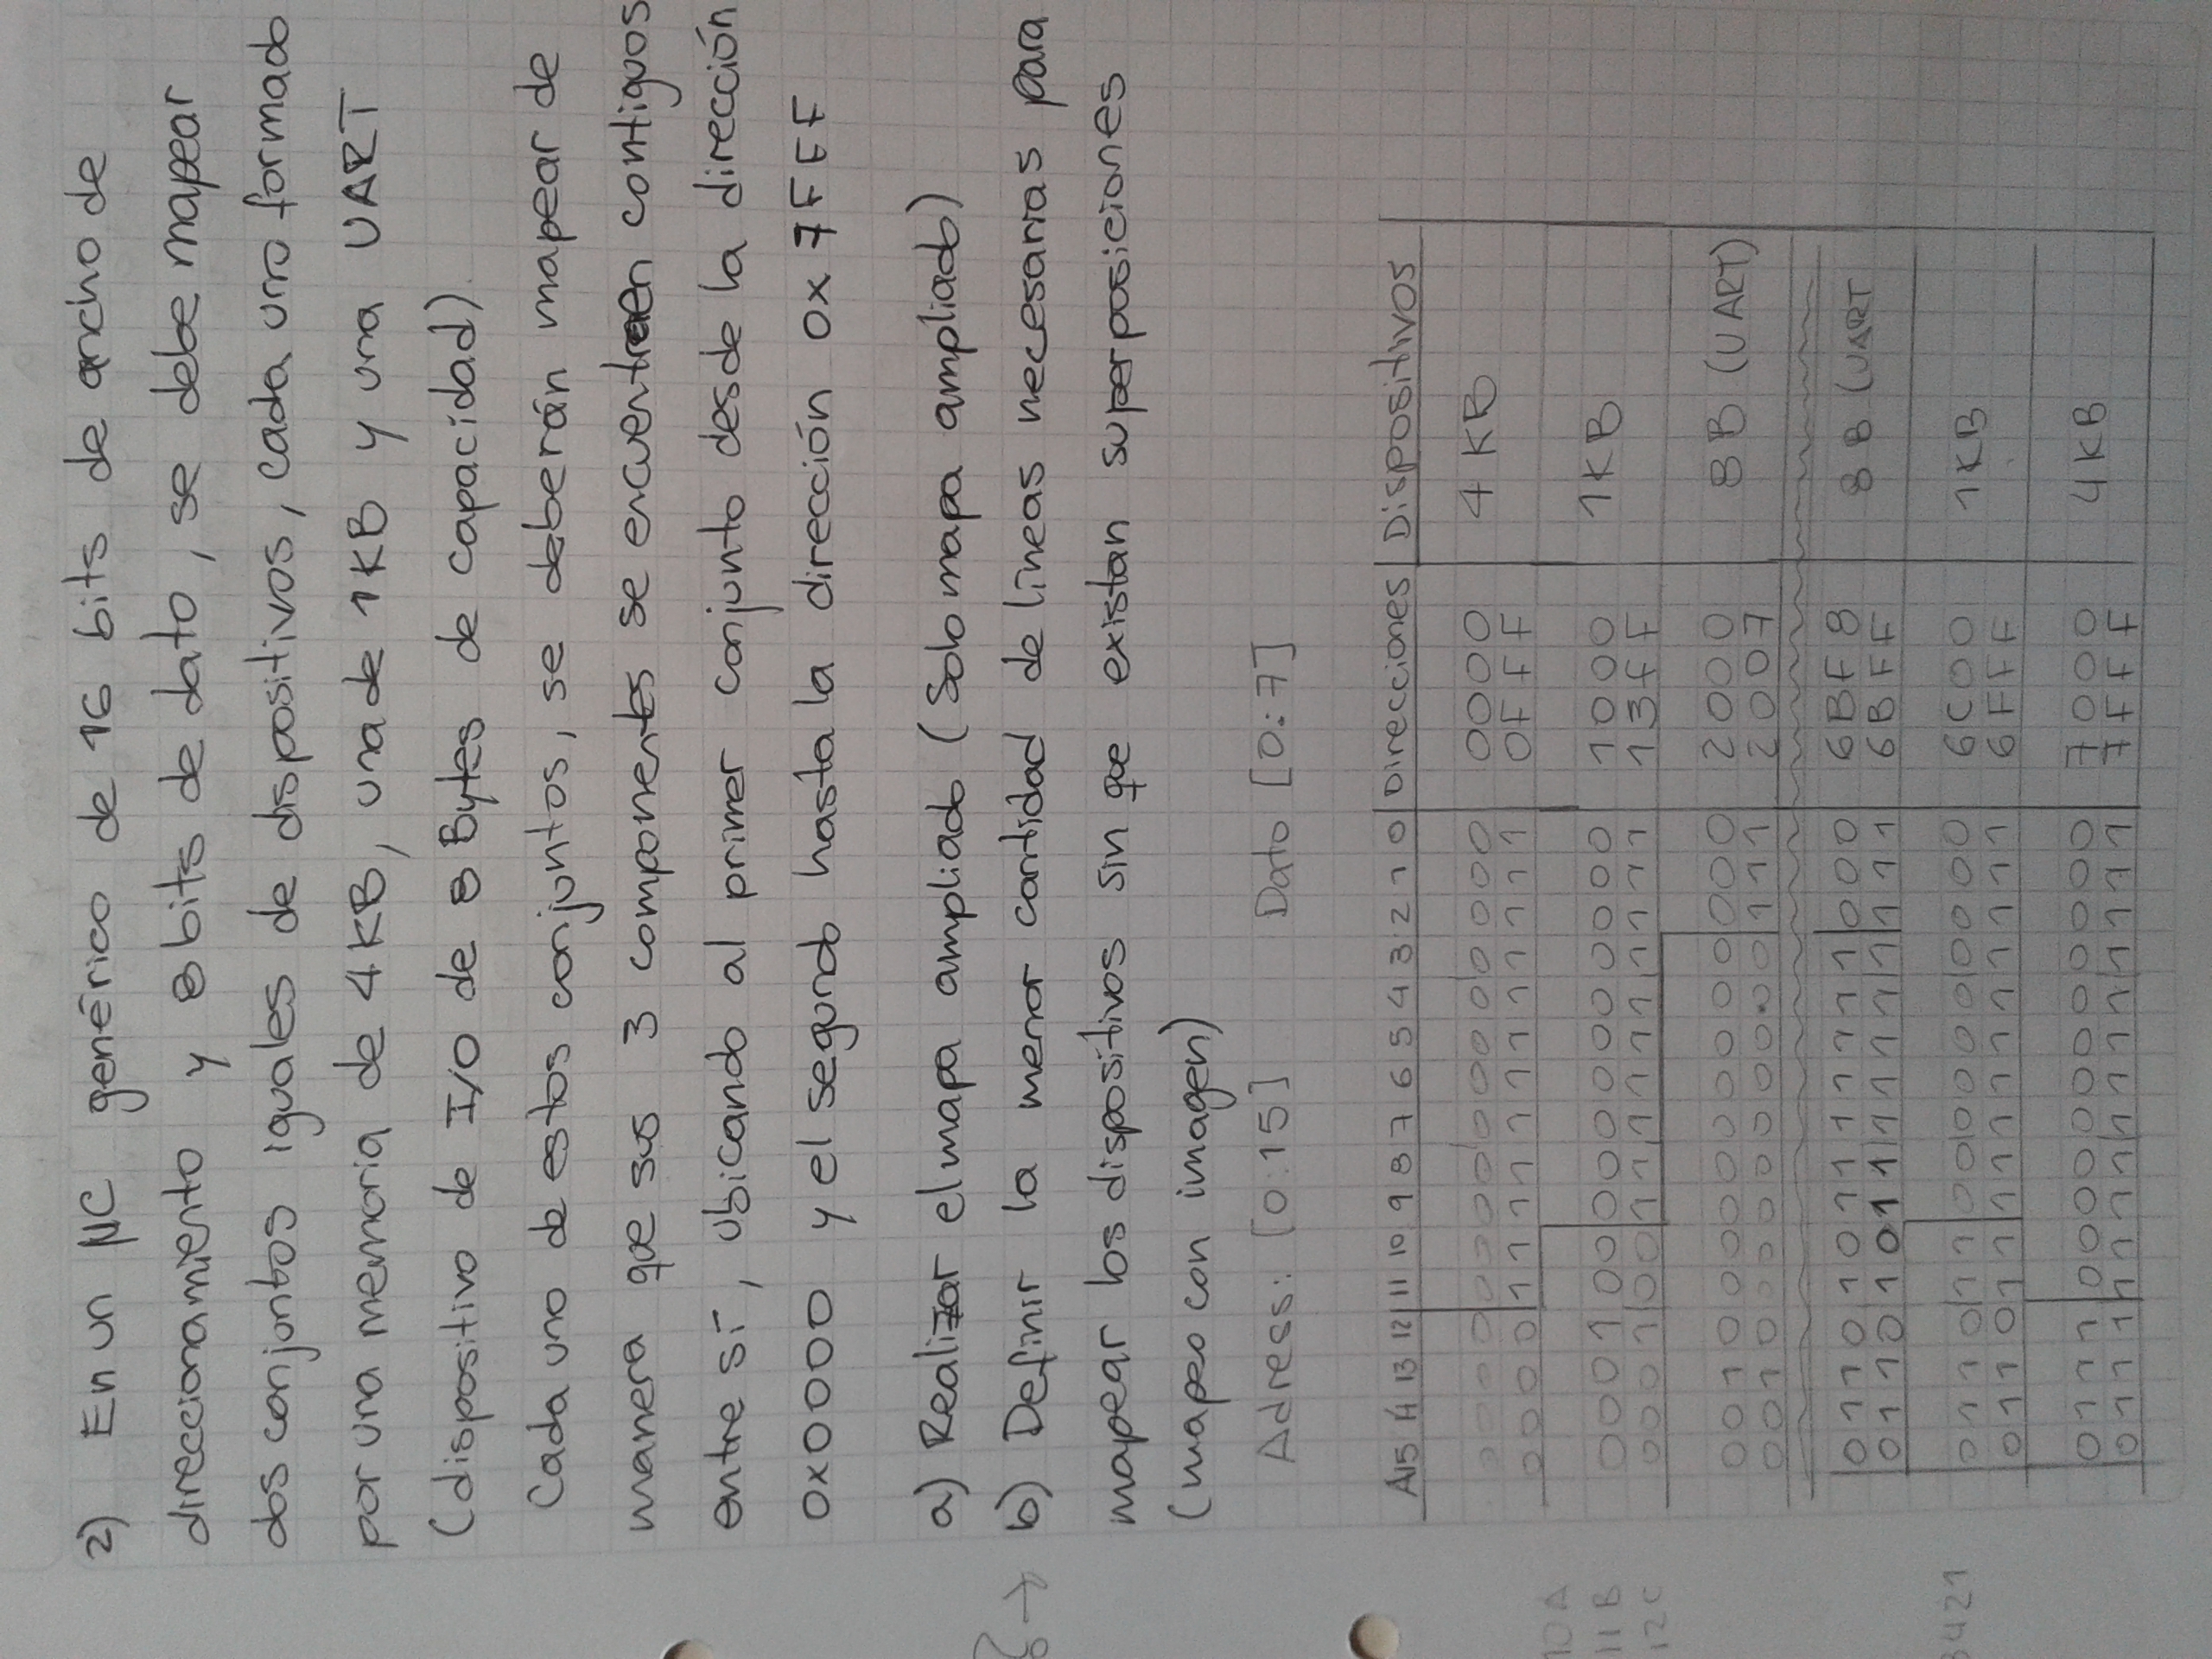 2) En un μC genérico de 16 bits de ancho de
direccionamiento y 8 bits de dato, se debe mapear
dos conjuntos iguales de dispositivos, cada uno formado
por una memoria de 4KB, una de 1KB y una UART
(dispositivo de I/O de 8 Bytes de capacidad).
Cada uno de estos conjuntos, se deberán mapear de
manera que sus 3 componentes se encuentren contiguos
entre sí, ubicando al primer conjunto desde la dirección
0x0000 y el segundo hasta la dirección 0x7FFF
a) Realizar el mapa ampliado (Solo mapa ampliado)
b) Definir la menor cantidad de líneas necesarias para
mapear los dispositivos sin que existan superposiciones
(mapeo con imagen)
Adress: [0:15] Dato [0:7]
A15 14 13 12 11 10 9 8 7 6 5 4 3 2 1 0 Direcciones Dispositivos
0 0 0 0 0 0 0 0 0 0 0 0 0 0 0 0 0000 4KB
0 0 0 0 1 1 1 1 1 1 1 1 1 1 1 1 0FFF
0 0 0 1 0 0 0 0 0 0 0 0 0 0 0 0 1000 1KB
0 0 0 1 0 0 1 1 1 1 1 1 1 1 1 1 13FF
0 0 1 0 0 0 0 0 0 0 0 0 0 0 0 0 2000 8B (UART)
0 0 1 0 0 0 0 0 0 0 0 0 0 1 1 1 2007
0 1 1 0 1 0 1 1 1 1 1 1 1 0 0 0 6BF8 8B (UART
0 1 1 0 1 0 1 1 1 1 1 1 1 1 1 1 6BFF
0 1 1 0 1 1 0 0 0 0 0 0 0 0 0 0 6C00 1KB
0 1 1 0 1 1 1 1 1 1 1 1 1 1 1 1 6FFF
0 1 1 1 0 0 0 0 0 0 0 0 0 0 0 0 7000 4KB
0 1 1 1 1 1 1 1 1 1 1 1 1 1 1 1 7FFF
10A
11B
12C
8421